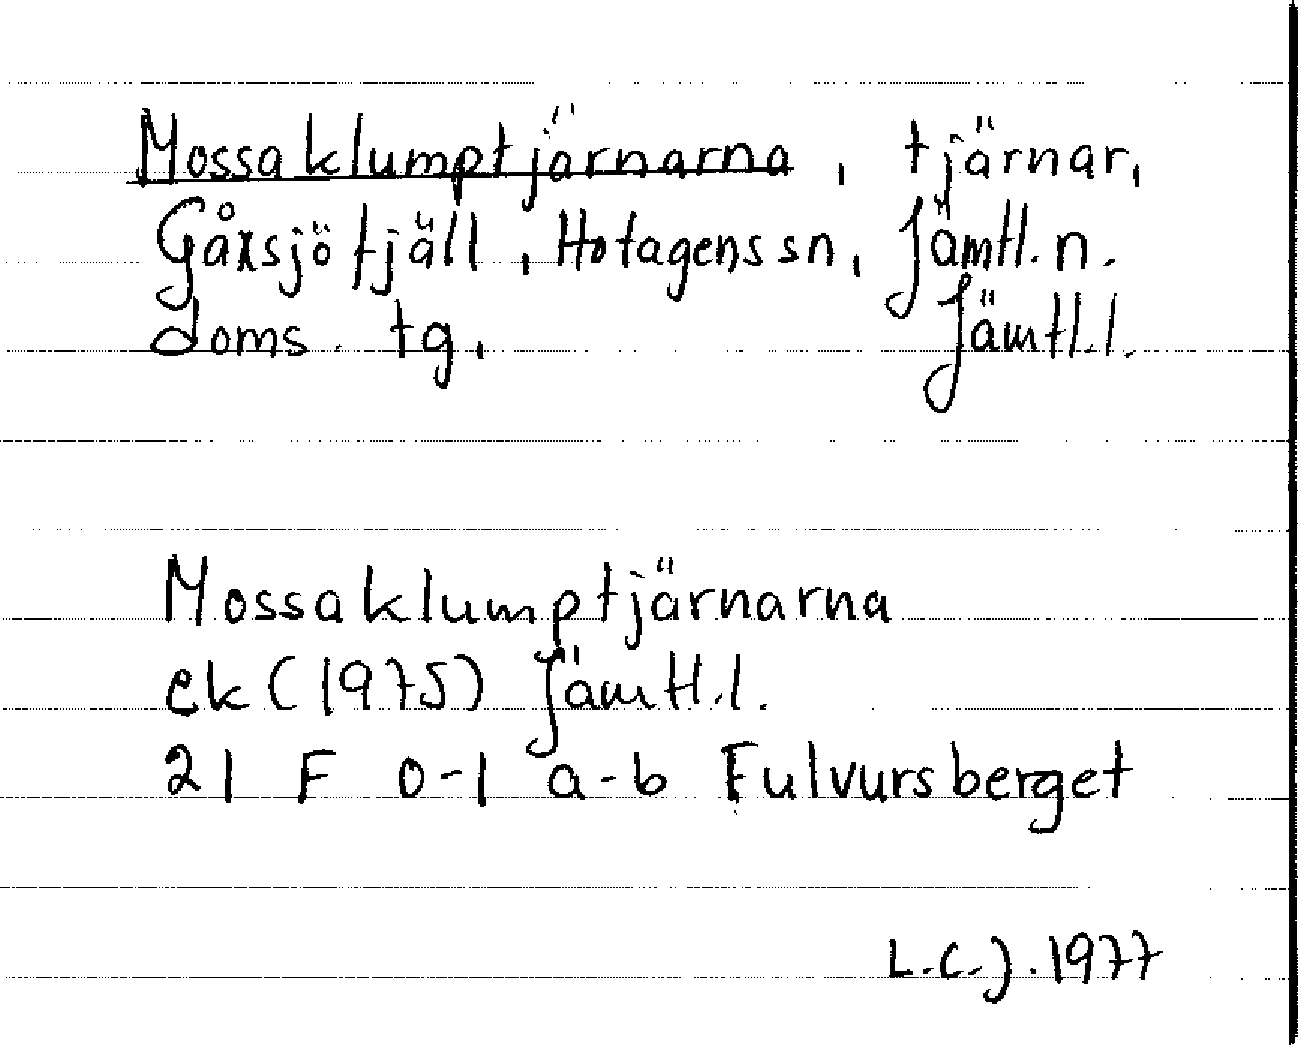 Mossaklumptjärnarna, tjärnar,
Gåxsjö fjäll, Hotagens sn, Jämtl. n.
doms. tg, Jämtl. l.
Mossaklumptjärnarna
ek (1975) Jämtl. l.
21 F 0-1 a-b Fulvursberget
L.C.J. 1977